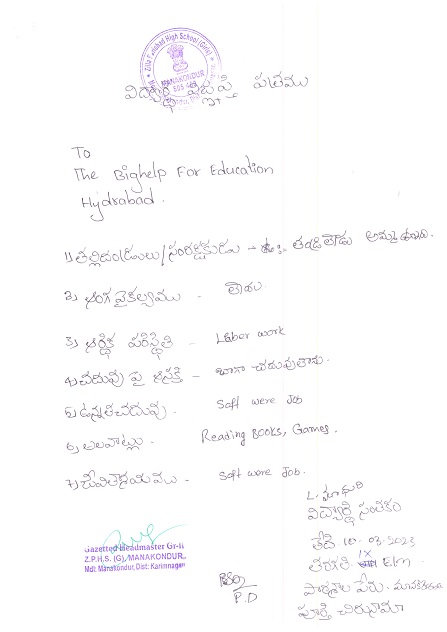 Zilla Parishad High School (Girls)
MANAKONDUR
విద్యార్థి విజ్ఞప్తి పత్రము
To
The Bighelp For Education
Hydrabad.
1) తల్లిదండ్రులు/సంరక్షకుడు - తండ్రి లేడు అమ్మ ఉంది.
2) అంగవైకల్యము - లేదు.
3) ఆర్థిక పరిస్థితి - Labor work
4) చదువు పై ఆసక్తి - బాగా చదువుతాను.
5) ఉన్నత చదువు. Saft were Job
6) అలవాట్లు. Reading Books, Games.
7) జీవితాశయము. Saft were Job.
L. మాధురి
విద్యార్థి సంతకం
తేదీ 10-03-2023
తరగతి. IX E/m
పాఠశాల పేరు.
పూర్తి చిరునామా
Gazetted Headmaster Gr-II
Z.P.H.S. (G), MANAKONDUR,
Mdl: Manakondur, Dist: Karimnagar
P.D